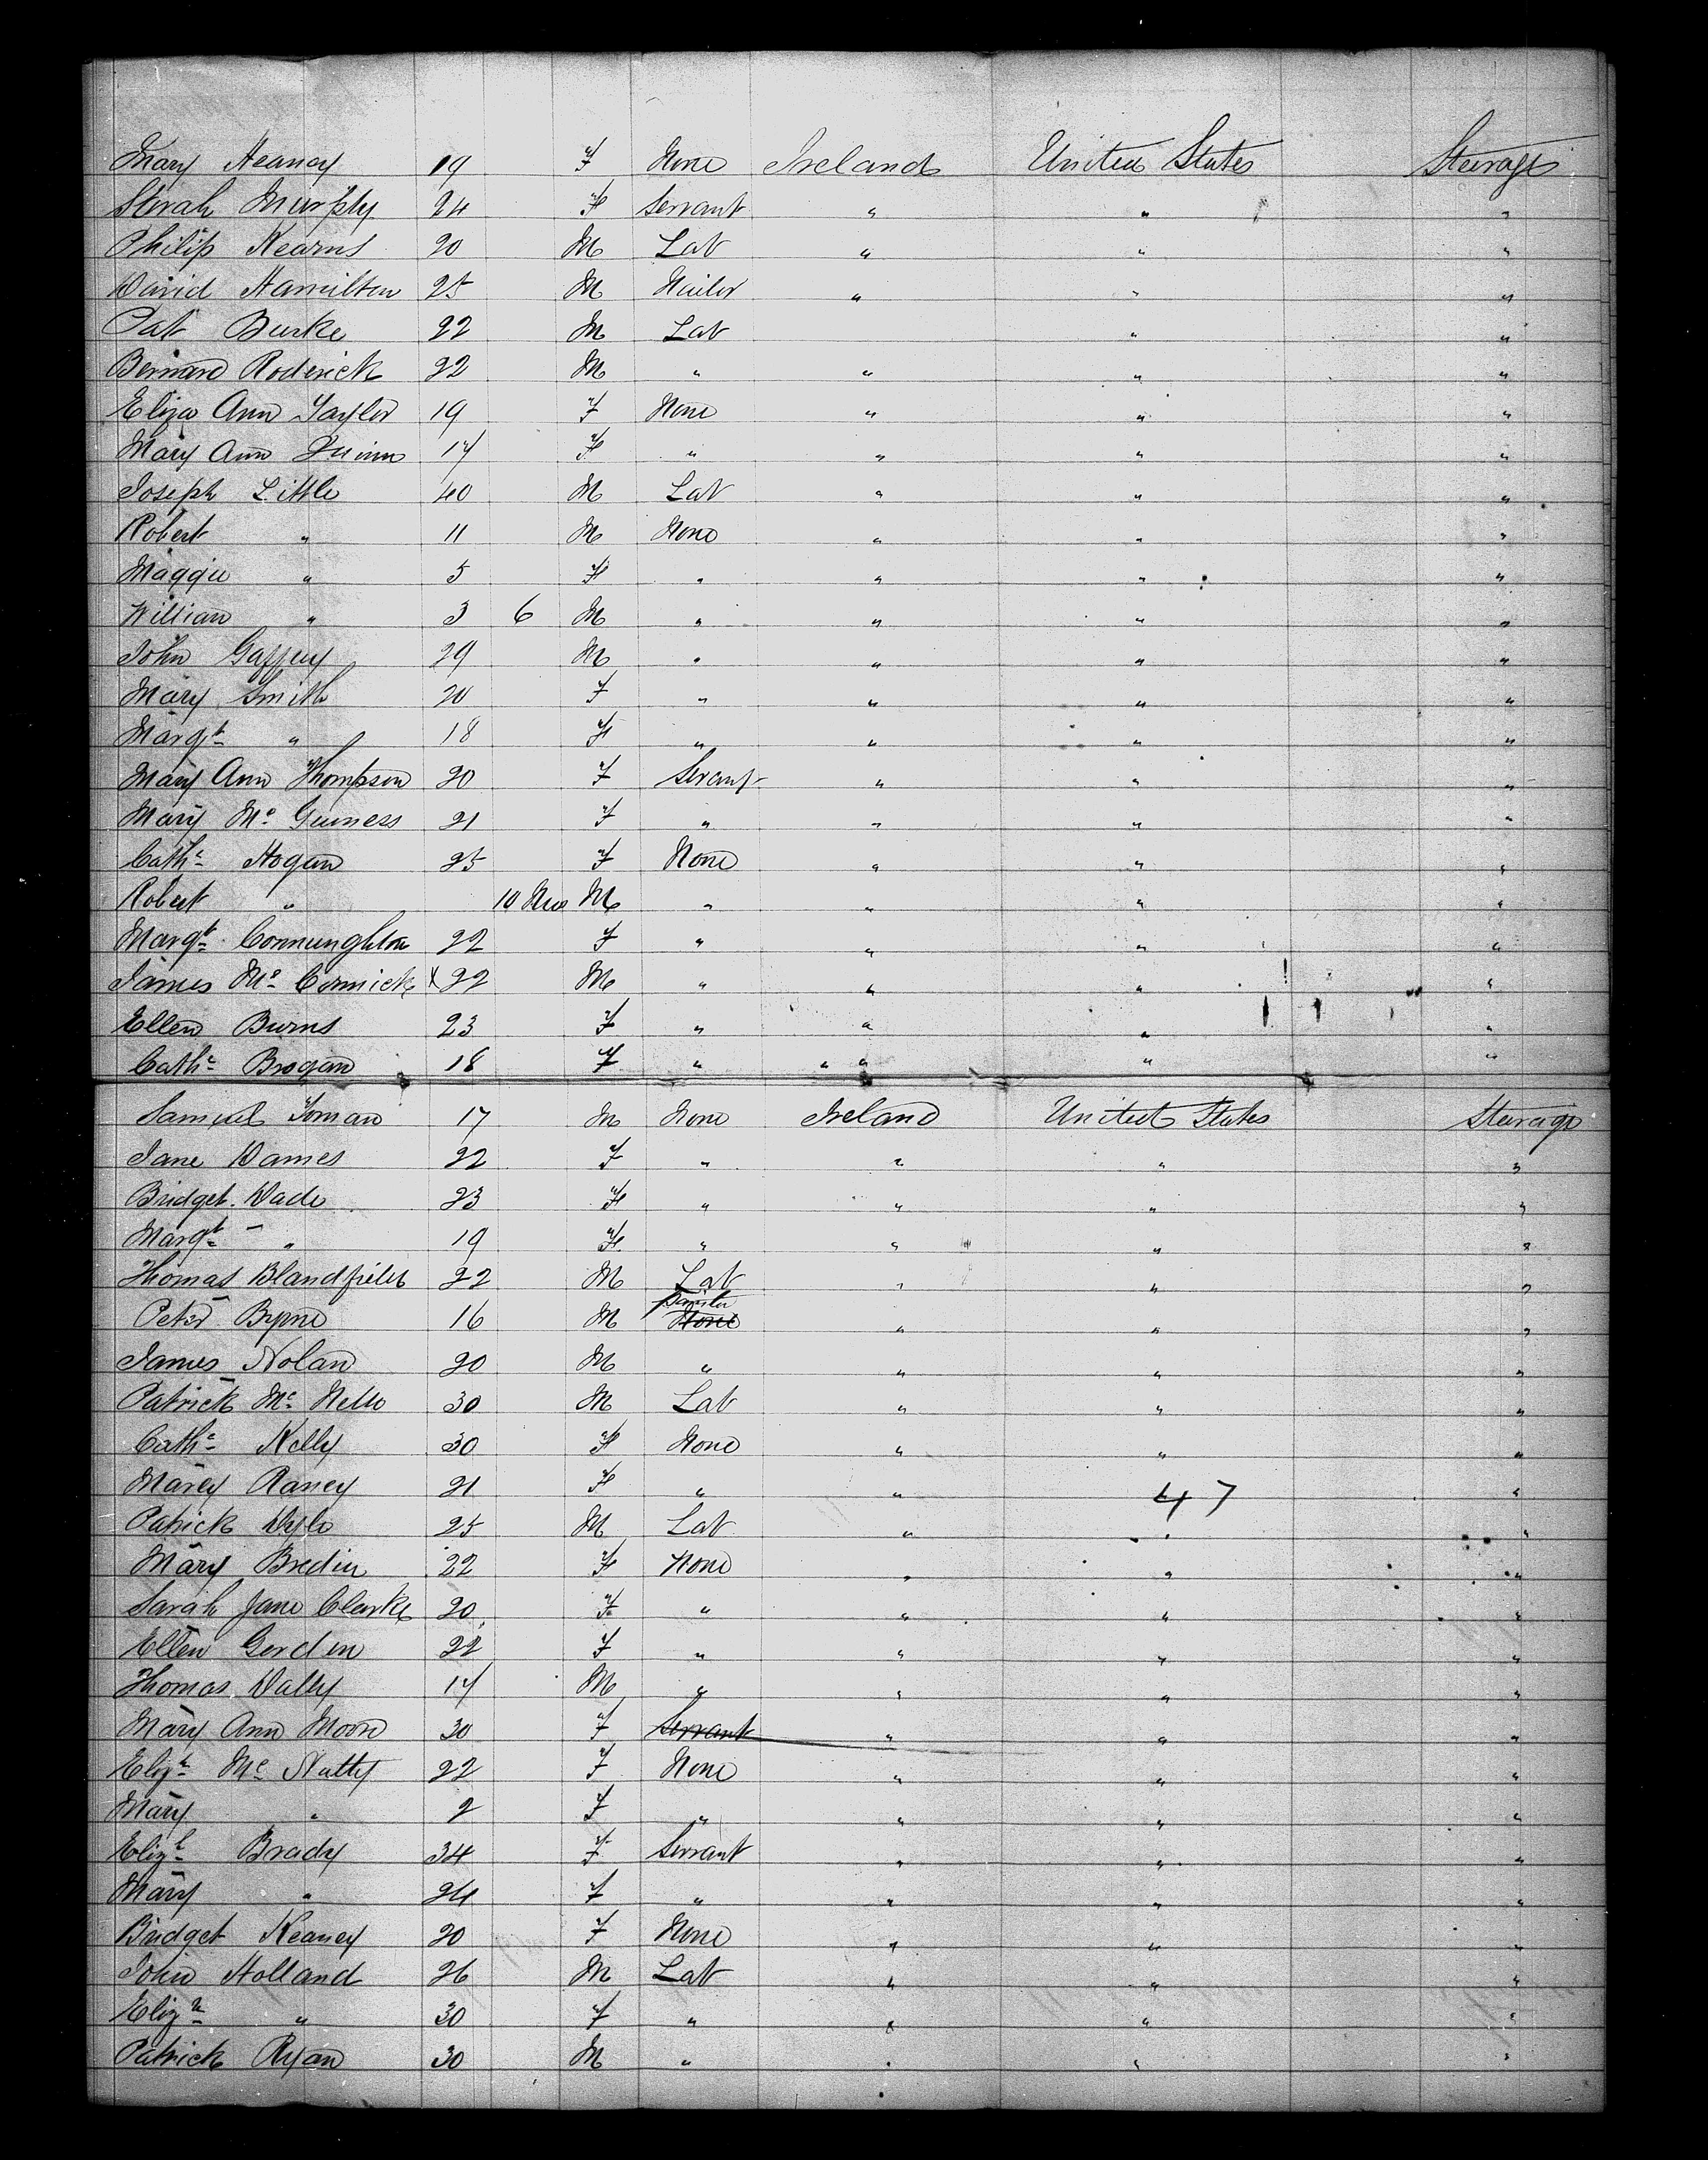 Mary Heaney 19 F None Ireland United States Steerage
Sarah Murphy 24 F Servant " " "
Philip Kearns 20 M Lab " " "
David Hamilton 25 M Nailor " " "
Pat Burke 22 M Lab " "
Bernard Roderick 22 M " " " "
Eliza Ann Taylor 19 F None " " "
Mary Ann Quinn 17 F " " " "
Joseph Little 40 M Lab " " "
Robert " 11 M None " " "
Maggie " 5 F " " " "
William " 3 6 M " " " "
John Gaffney 29 M " " " "
Mary Smith 20 F " " " "
Margt " 18 F " " " "
Mary Ann Thompson 20 F Servant " " "
Mary Mc Guiness 21 F " " " "
Cathe Hogan 25 F None " " "
Robert " 10 Mos M " " " "
Margt Connunghton 22 F " " " "
James Mc Cormick X 22 M " " " "
Ellen Burns 23 F " " " "
Cathe Brogan 18 F " " " " "
Samuel Toman 17 M None Ireland United States Steerage
Jane Dames 22 F " " " "
Bridget Dade 23 F " " " "
Margt " 19 F " " " "
Thomas Blandfield 22 M Lab " " "
Peter Byrne 16 M None " " "
James Nolan 20 M " " " "
Patrick Mc Nello 30 M Lab " " "
Cathe Kelly 30 F None " " "
Marey Raney 21 F " " 47 "
Patrick Dyle 25 M Lab " " "
Mary Bredin 22 F None " " "
Sarah Jane Clarke 20 F " " " "
Ellen Gordon 22 F " " " "
Thomas Dally 17 M " " " "
Mary Ann Moore 30 F Servant " " "
Elizh Mc Nutty 22 F None " " "
Mary " 2 F " " " "
Elizh Brady 34 F Servant " " "
Mary " 24 F " " " "
Bridget Keaney 20 F None " " "
John Holland 26 M Lab " " "
Elizh " 30 F " " " "
Patrick Ryan 30 M " " " "